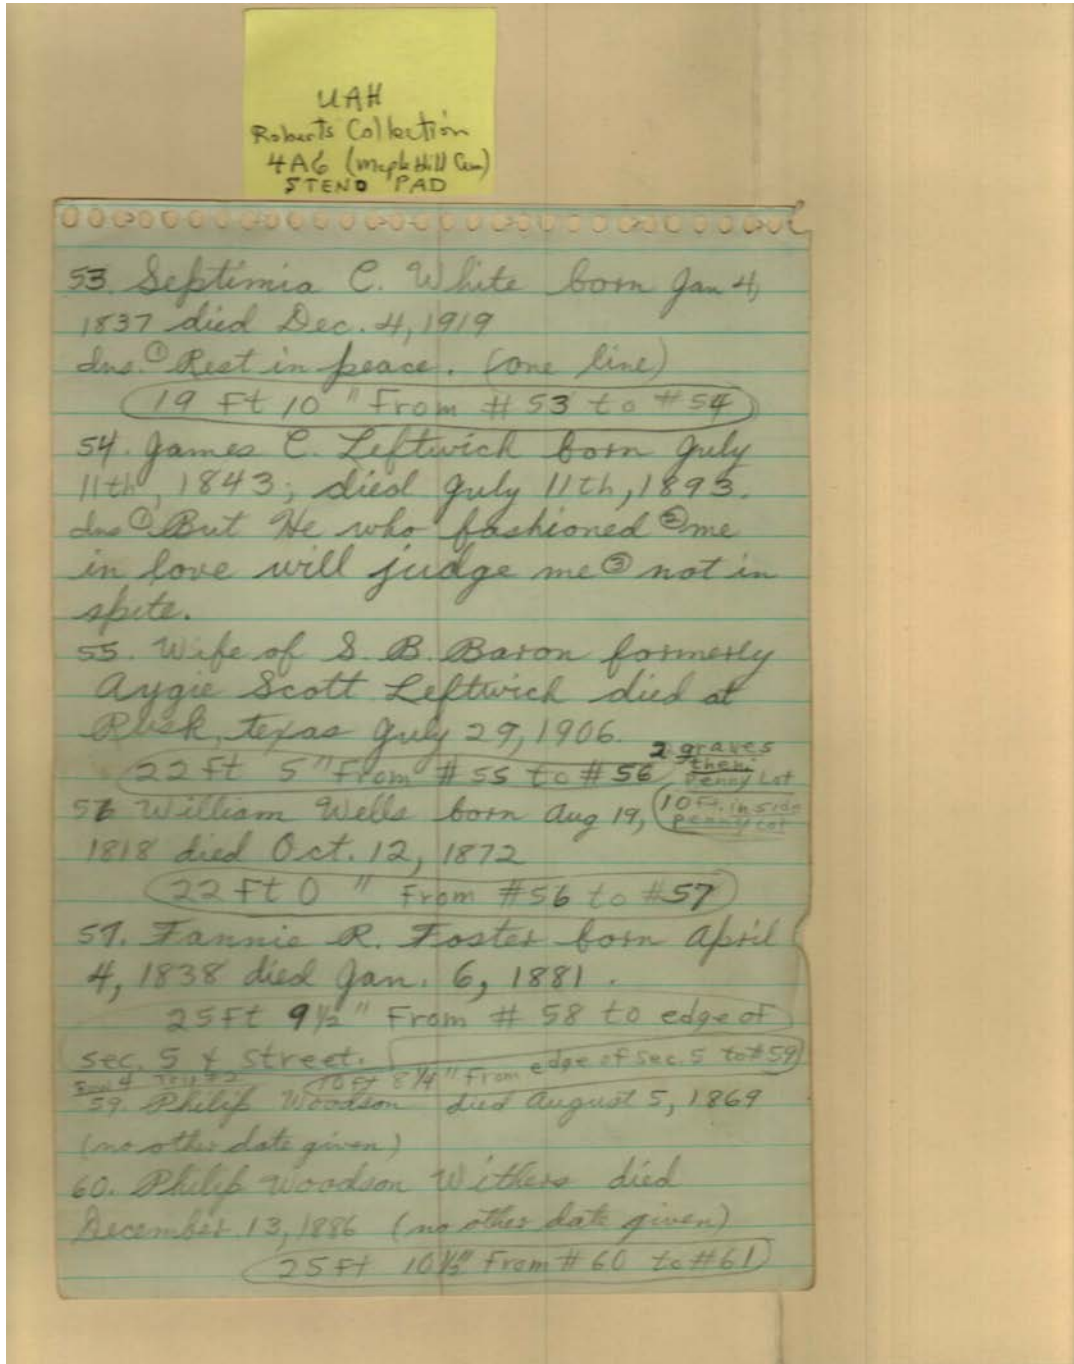 UAH
Roberts Collection
4A6 (Maple Hill Cem)
STENO PAD
53. Septimia C. White born Jan 4,
1837 died Dec. 4, 1919
Ins. ① Rest in peace. (one line)
19 Ft 10 " From # 53 to # 54
54. James C. Leftwich born July
11th, 1843; died July 11th, 1893.
Ins ① But He who fashioned ② me
in love will judge me ③ not in
spite.
55. Wife of S. B. Baron formerly
Aygie Scott Leftwich died at
Rusk, Texas July 29, 1906.
2 graves
then
Penny Lot
22 Ft 5 " From # 55 to # 56
56 William Wells born Aug 19,
10 Ft. inside
penny lot
1818 died Oct. 12, 1872
22 Ft 0 " From #56 to #57
57. Fannie R. Foster born April
4, 1838 died Jan. 6, 1881.
25 Ft 9 1/2 " From # 58 to edge of
sec. 5 & street.
10 Ft 8 1/4 " From edge of Sec. 5 to #59
59. Philip Woodson died August 5, 1869
(no other date given)
60. Philip Woodson Withers died
December 13, 1886 (no other date given)
25 Ft 10 1/2" From # 60 to #61